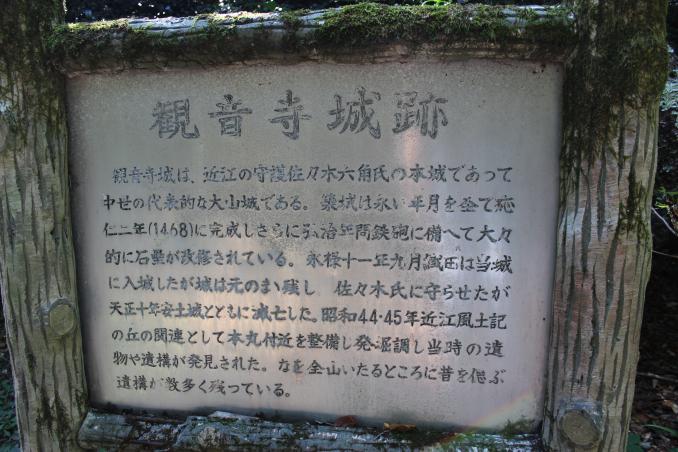 観音寺城跡
観音寺城は、近江の守護佐々木六角氏の本城であって
中世の代表的な大山城である。築城は永い年月を全て応
仁二年(1468)に完成しさらに弘治年間鉄砲に備へて大々
的に石塁が改修されている。永禄十一年九月信長は当城
に入城したが城は元のまゝ残し 佐々木氏に守らせたが
天正十年安土城とともに滅亡した。昭和44.45年近江風土記
の丘の関連として本丸付近を整備し発掘調し当時の遺
物や遺構が発見された。なを全山いたるところに昔を偲ぶ
遺構が数多く残っている。